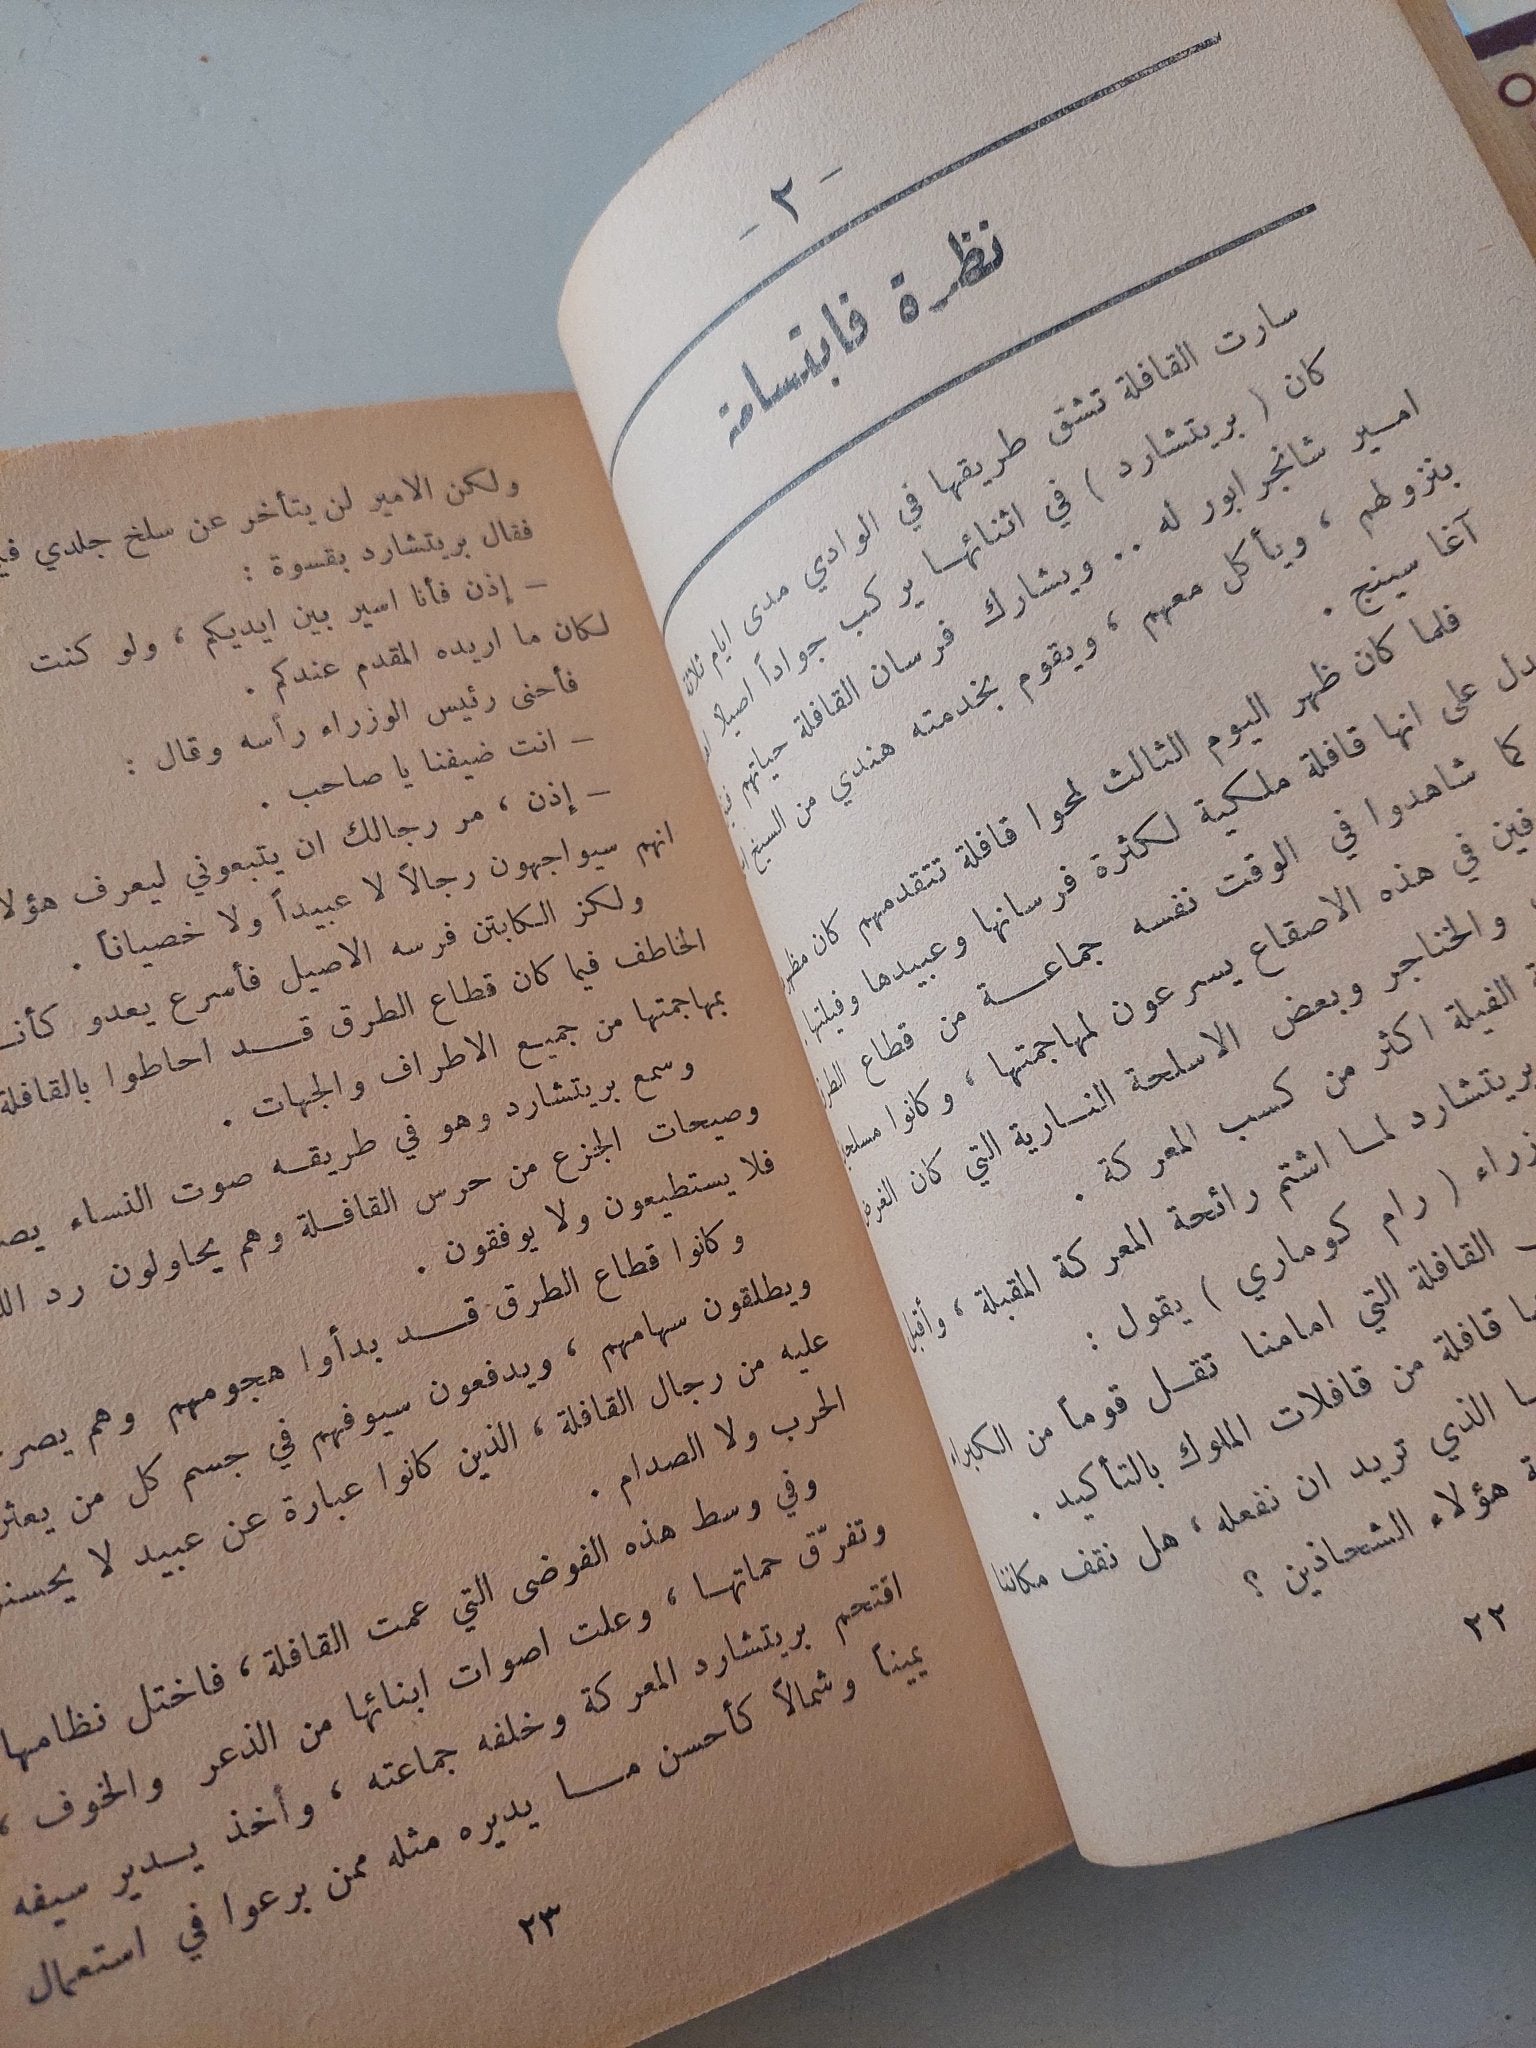 - ٢ -
نظرة فابتسامة
سارت القافلة تشق طريقها في الوادي مدى ايام ثلاثة
كان ( بريتشارد ) في اثنائها يركب جواداً اصيلا
امير شانجرابور له .. ويشارك فرسان القافلة حياتهم
بنزولهم ، ويأكل معهم ، ويقوم بخدمته هندي من السيخ
آغا سينج .
فلما كان ظهر اليوم الثالث لمحوا قافلة تتقدمهم كان
دل على انها قافلة ملكية لكثرة فرسانها وعبيدها وفيلتها
كما شاهدوا في الوقت نفسه جماعة من قطاع
في هذه الاصقاع يسرعون لمهاجمتها ، وكانوا
والخناجر وبعض الاسلحة النارية التي كان
الفيلة اكثر من كسب المعركة .
بريتشارد لما اشتم رائحة المعركة المقبلة ، وأقبل
( رام كوماري ) يقول :
القافلة التي امامنا تقل قوماً من الكبراء
قافلة من قافلات الملوك بالتأكيد .
الذي تريد ان نفعله ، هل نقف مكاننا
هؤلاء الشحاذين ؟
٢٢
ولكن الامير لن يتأخر عن سلخ جلدي
فقال بريتشارد بقسوة :
– إذن فأنا اسير بين ايديكم ، ولو كنت
لكان ما اريده المقدم عندكم .
فأحنى رئيس الوزراء رأسه وقال :
– انت ضيفنا يا صاحب .
– إذن ، مر رجالك ان يتبعوني ليعرف
انهم سيواجهون رجالاً لا عبيداً ولا خصياناً .
ولكز الكابتن فرسه الاصيل فأسرع يعدو
الخاطف فيما كان قطاع الطرق قد احاطوا بالقافلة
بمهاجمتها من جميع الاطراف والجهات .
وسمع بريتشارد وهو في طريقه صوت النساء
وصيحات الجزع من حرس القافلة وهم يحاولون رد
فلا يستطيعون ولا يوفقون .
وكانوا قطاع الطرق قد بدأوا هجومهم وهم
ويطلقون سهامهم ، ويدفعون سيوفهم في جسم كل من
عليه من رجال القافلة ، الذين كانوا عبارة عن عبيد لا
الحرب ولا الصدام .
وفي وسط هذه الفوضى التي عمت القافلة ، فاختل نظامها
وتفرّق حماتها ، وعلت اصوات ابنائها من الذعر والخوف ،
اقتحم بريتشارد المعركة وخلفه جماعته ، وأخذ يدير سيفه
يميناً وشمالاً كأحسن ما يديره مثله ممن برعوا في استعمال
٢٣